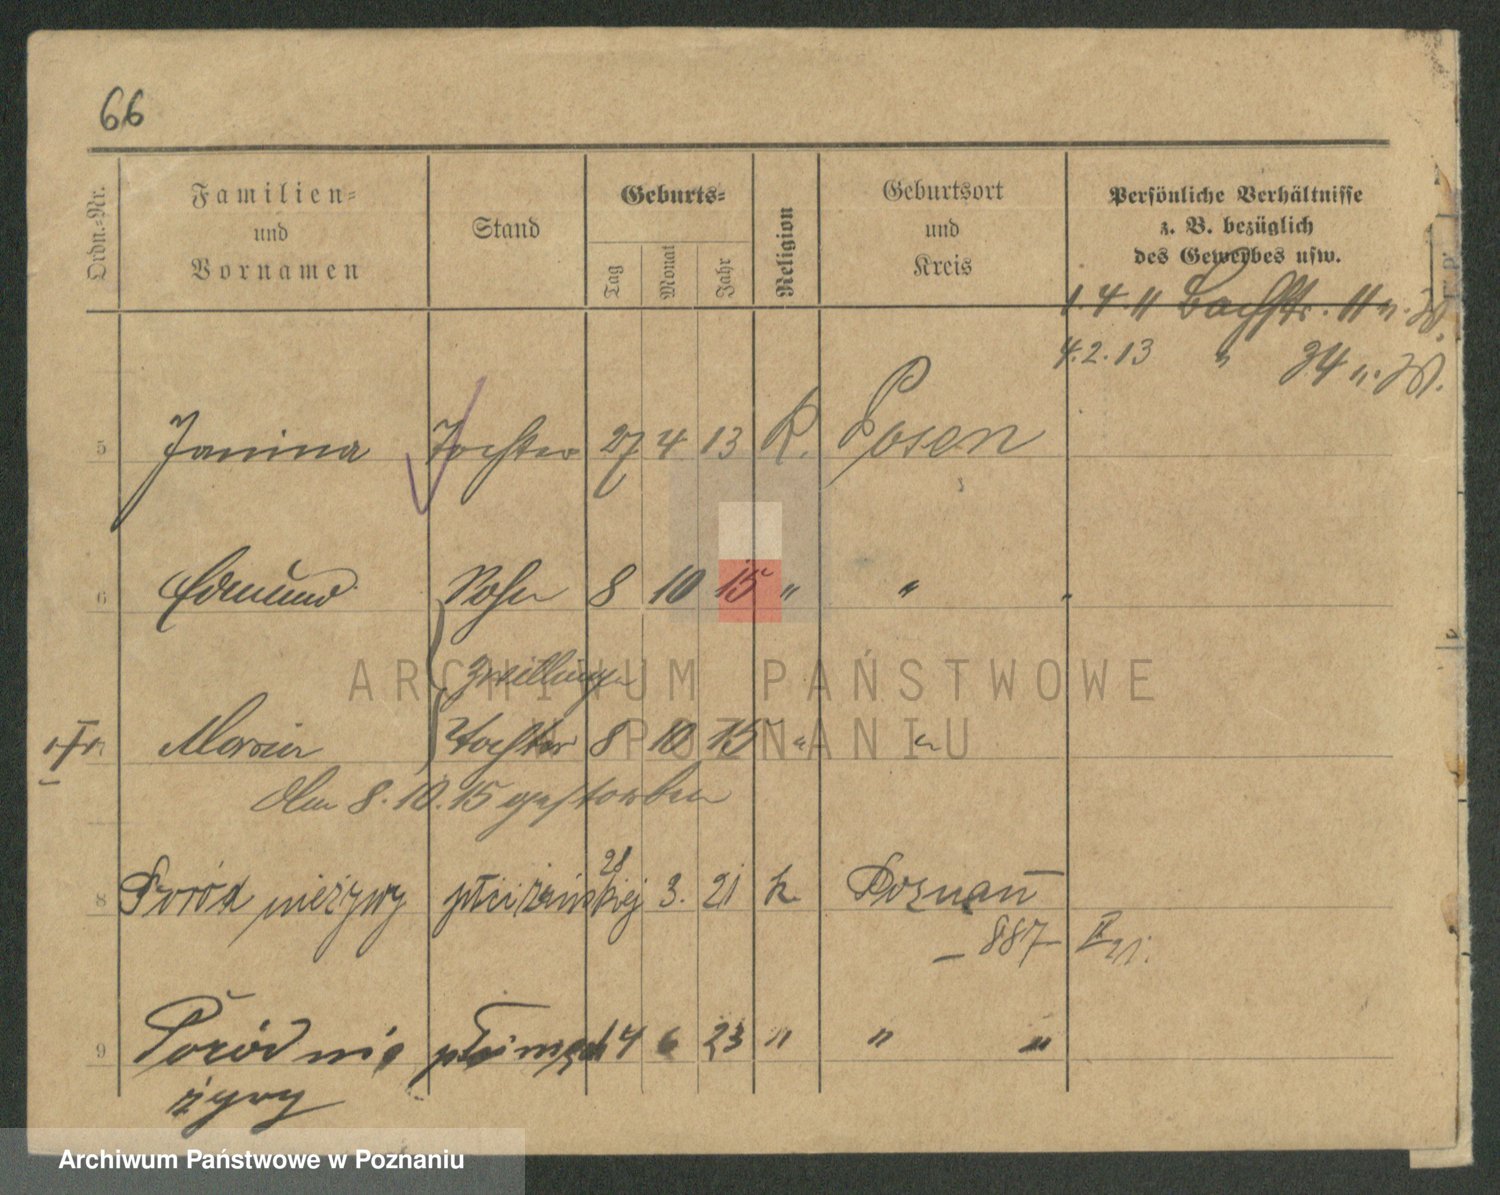 66
Ordn.-Nr.
Familien- und Vornamen
Stand
Geburts-
Tag
Monat
Jahr
Religion
Geburtsort und Kreis
Persönliche Verhältnisse
z. B. bezüglich
des Gewerbes usw.
1.4.11 Bachstr. 11 n. W.
4.2.13 " 34 n. W.
5 Janina Tochter 27 4 13 K. Posen
6 Edmund Sohn 8 10 15 " " "
Zwillinge
Tochter 8 10 15 " "
den 8.10.15 gestorben
8 Poród nieżywy płci żeńskiej 21 3. 21 k. Poznań
887 II 21.
9 Poród nie płci męs 4 6 23 " " "
żywy
ARCHIWUM PAŃSTWOWE
W POZNANIU
Archiwum Państwowe w Poznaniu